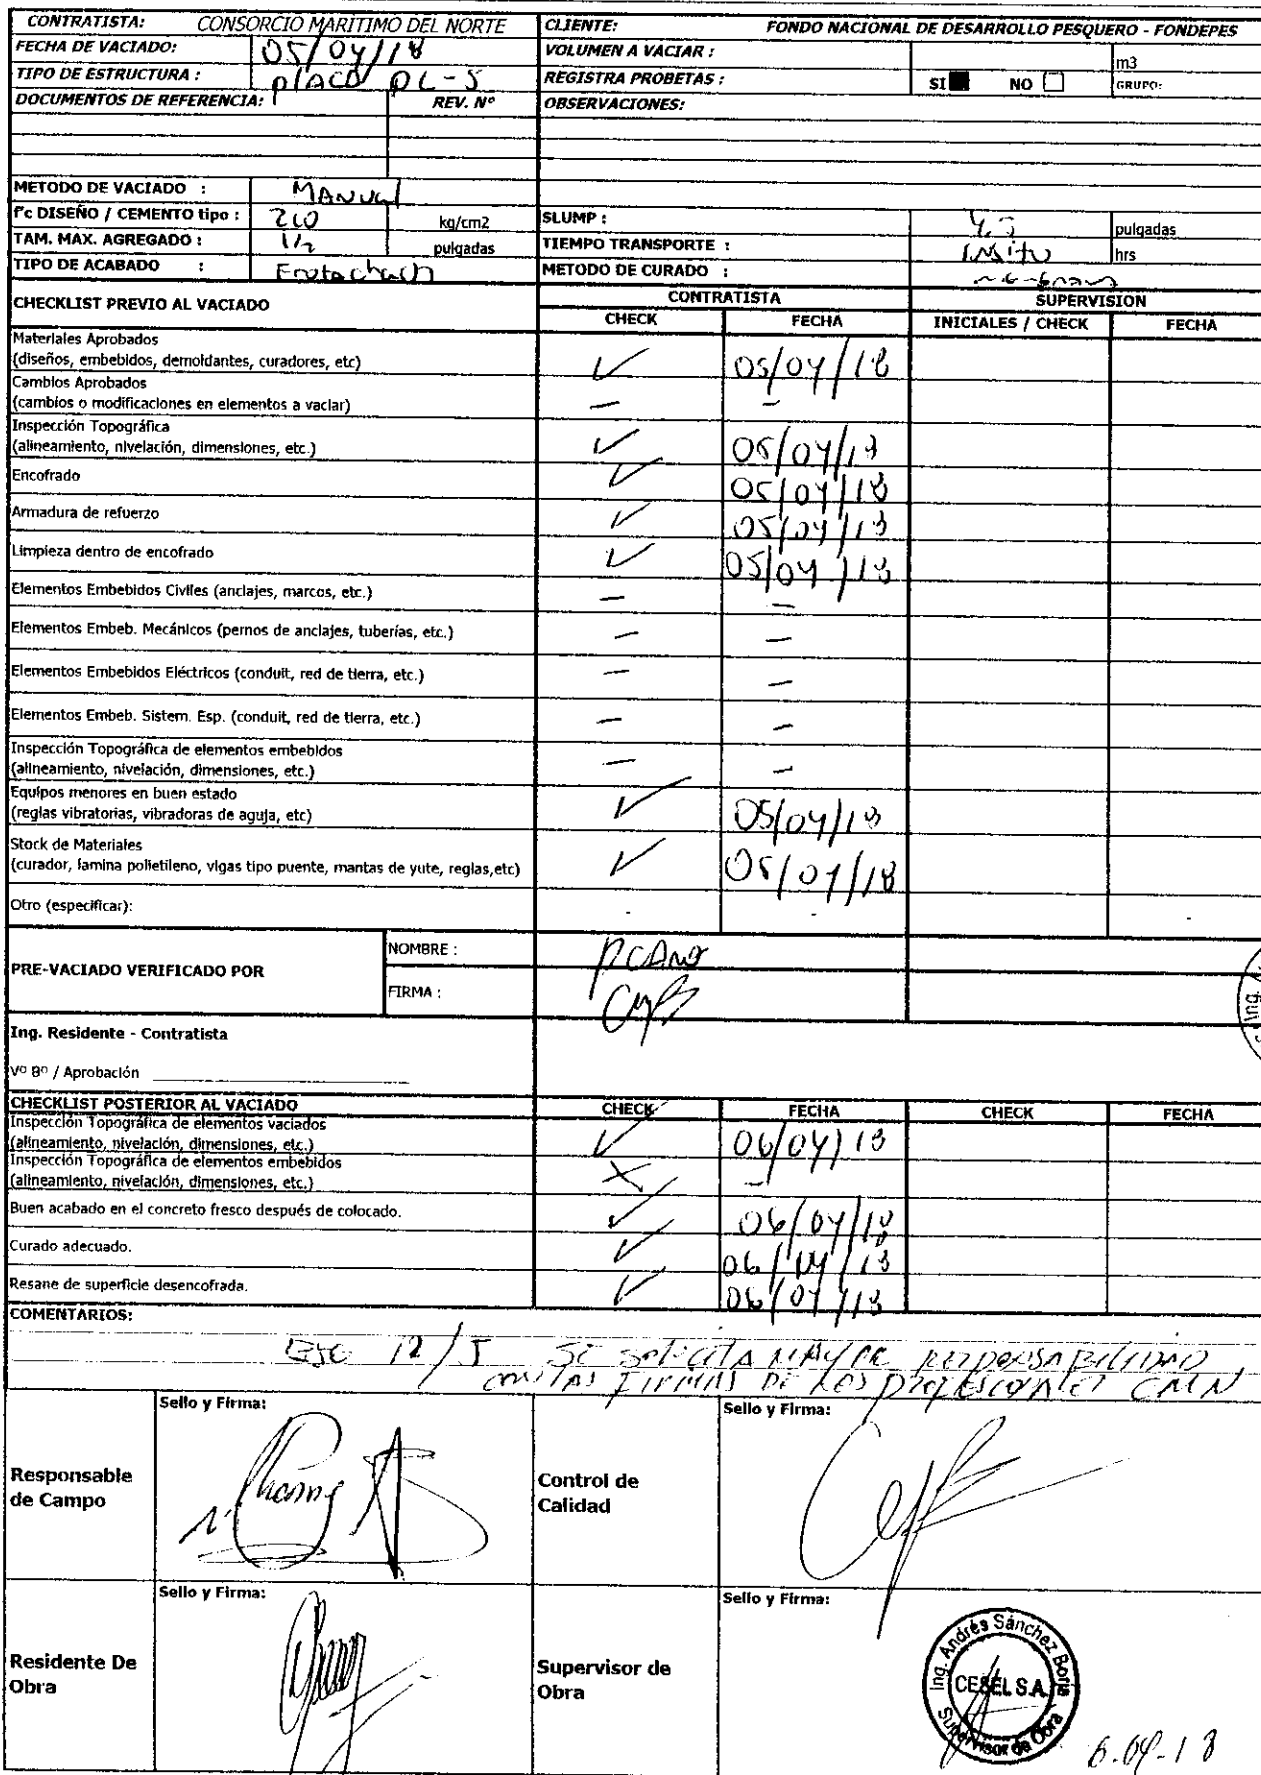 CONTRATISTA: CONSORCIO MARÍTIMO DEL NORTE CLIENTE: FONDO NACIONAL DE DESARROLLO PESQUERO - FONDEPES
FECHA DE VACIADO: 05/04/18 VOLUMEN A VACIAR : m3
TIPO DE ESTRUCTURA : PLACA PL-5 REGISTRA PROBETAS : SI NO GRUPO:
DOCUMENTOS DE REFERENCIA: REV. Nº OBSERVACIONES:
METODO DE VACIADO : MANUAL
f'c DISEÑO / CEMENTO tipo : 210 kg/cm2 SLUMP : pulgadas
TAM. MAX. AGREGADO : 1/2 pulgadas TIEMPO TRANSPORTE : INSITU hrs
TIPO DE ACABADO : METODO DE CURADO :
CHECKLIST PREVIO AL VACIADO CONTRATISTA SUPERVISION
CHECK FECHA INICIALES / CHECK FECHA
Materiales Aprobados
(diseños, embebidos, demoldantes, curadores, etc) ✓ 05/04/18
Cambios Aprobados
(cambios o modificaciones en elementos a vaciar) — —
Inspección Topográfica
(alineamiento, nivelación, dimensiones, etc.) ✓ 05/04/18
Encofrado ✓ 05/04/18
Armadura de refuerzo ✓ 05/04/18
Limpieza dentro de encofrado ✓ 05/04/18
Elementos Embebidos Civiles (anclajes, marcos, etc.) — —
Elementos Embeb. Mecánicos (pernos de anclajes, tuberías, etc.) — —
Elementos Embebidos Eléctricos (conduit, red de tierra, etc.) — —
Elementos Embeb. Sistem. Esp. (conduit, red de tierra, etc.) — —
Inspección Topográfica de elementos embebidos
(alineamiento, nivelación, dimensiones, etc.) — —
Equipos menores en buen estado
(reglas vibratorias, vibradoras de aguja, etc) ✓ 05/04/18
Stock de Materiales
(curador, lamina polietileno, vigas tipo puente, mantas de yute, reglas,etc) ✓ 05/04/18
Otro (especificar): - - -
PRE-VACIADO VERIFICADO POR NOMBRE :
FIRMA :
Ing.
Ing. Residente - Contratista
Vº Bº / Aprobación
CHECKLIST POSTERIOR AL VACIADO CHECK FECHA CHECK FECHA
Inspección Topográfica de elementos vaciados
(alineamiento, nivelación, dimensiones, etc.) ✓ 06/04/18
Inspección Topográfica de elementos embebidos
(alineamiento, nivelación, dimensiones, etc.) X —
Buen acabado en el concreto fresco después de colocado. ✓ 06/04/18
Curado adecuado. ✓ 06/04/18
Resane de superficie desencofrada. ✓ 06/04/18
COMENTARIOS:
EJE 12/J SE SOLICITA MAYOR RESPONSABILIDAD
CON LAS FIRMAS DE LOS PROFESIONALES CMN
Responsable de Campo Sello y Firma: Control de Calidad Sello y Firma:
Residente De Obra Sello y Firma: Supervisor de Obra Sello y Firma:
Ing. Andrés Sánchez Borja
CESEL S.A.
Supervisor de Obra
6.04-18